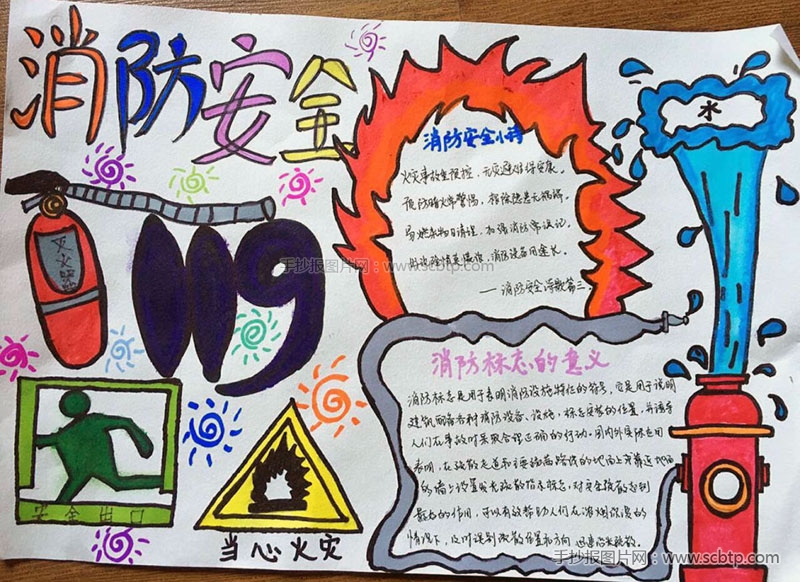 消防安全
水
消防安全小诗
火灾事故重预控，无灾避难保安康。
预防暗火常警惕，
易燃杂物日清理，
——消防安全诗歌篇三
灭火器
119
手抄报图片网：www.scbtp.com
消防标志的意义
消防标志是用于表明消防设施特征的符号，它是用于说明
建筑配备各种消防设备、设施，标志安装的位置，并诱导
人们在事故时采取合理正确的行动。国内外实际应用
表明，在疏散走道和主要疏散路线的地面上或靠近地面
的墙上设置发光疏散指示标志，对安全疏散起到
很好的作用，可以有效帮助人们在浓烟弥漫的
情况下，及时识别疏散位置和方向
安全出口
当心火灾
手抄报图片网：www.scbtp.com